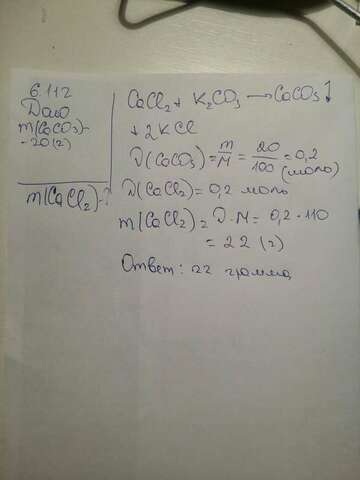 6.112
Дано
m(CaCO3)-
-20(г)
m(CaCl2)-?
CaCl2+ K2CO3 →CaCO3↓
+ 2KCl
ν(CaCO3)=m/M=20/100=0,2
(моль)
ν(CaCl2)=0,2 моль
m(CaCl2)=ν·M=0,2·110
=22 (г)
Ответ: 22 грамма